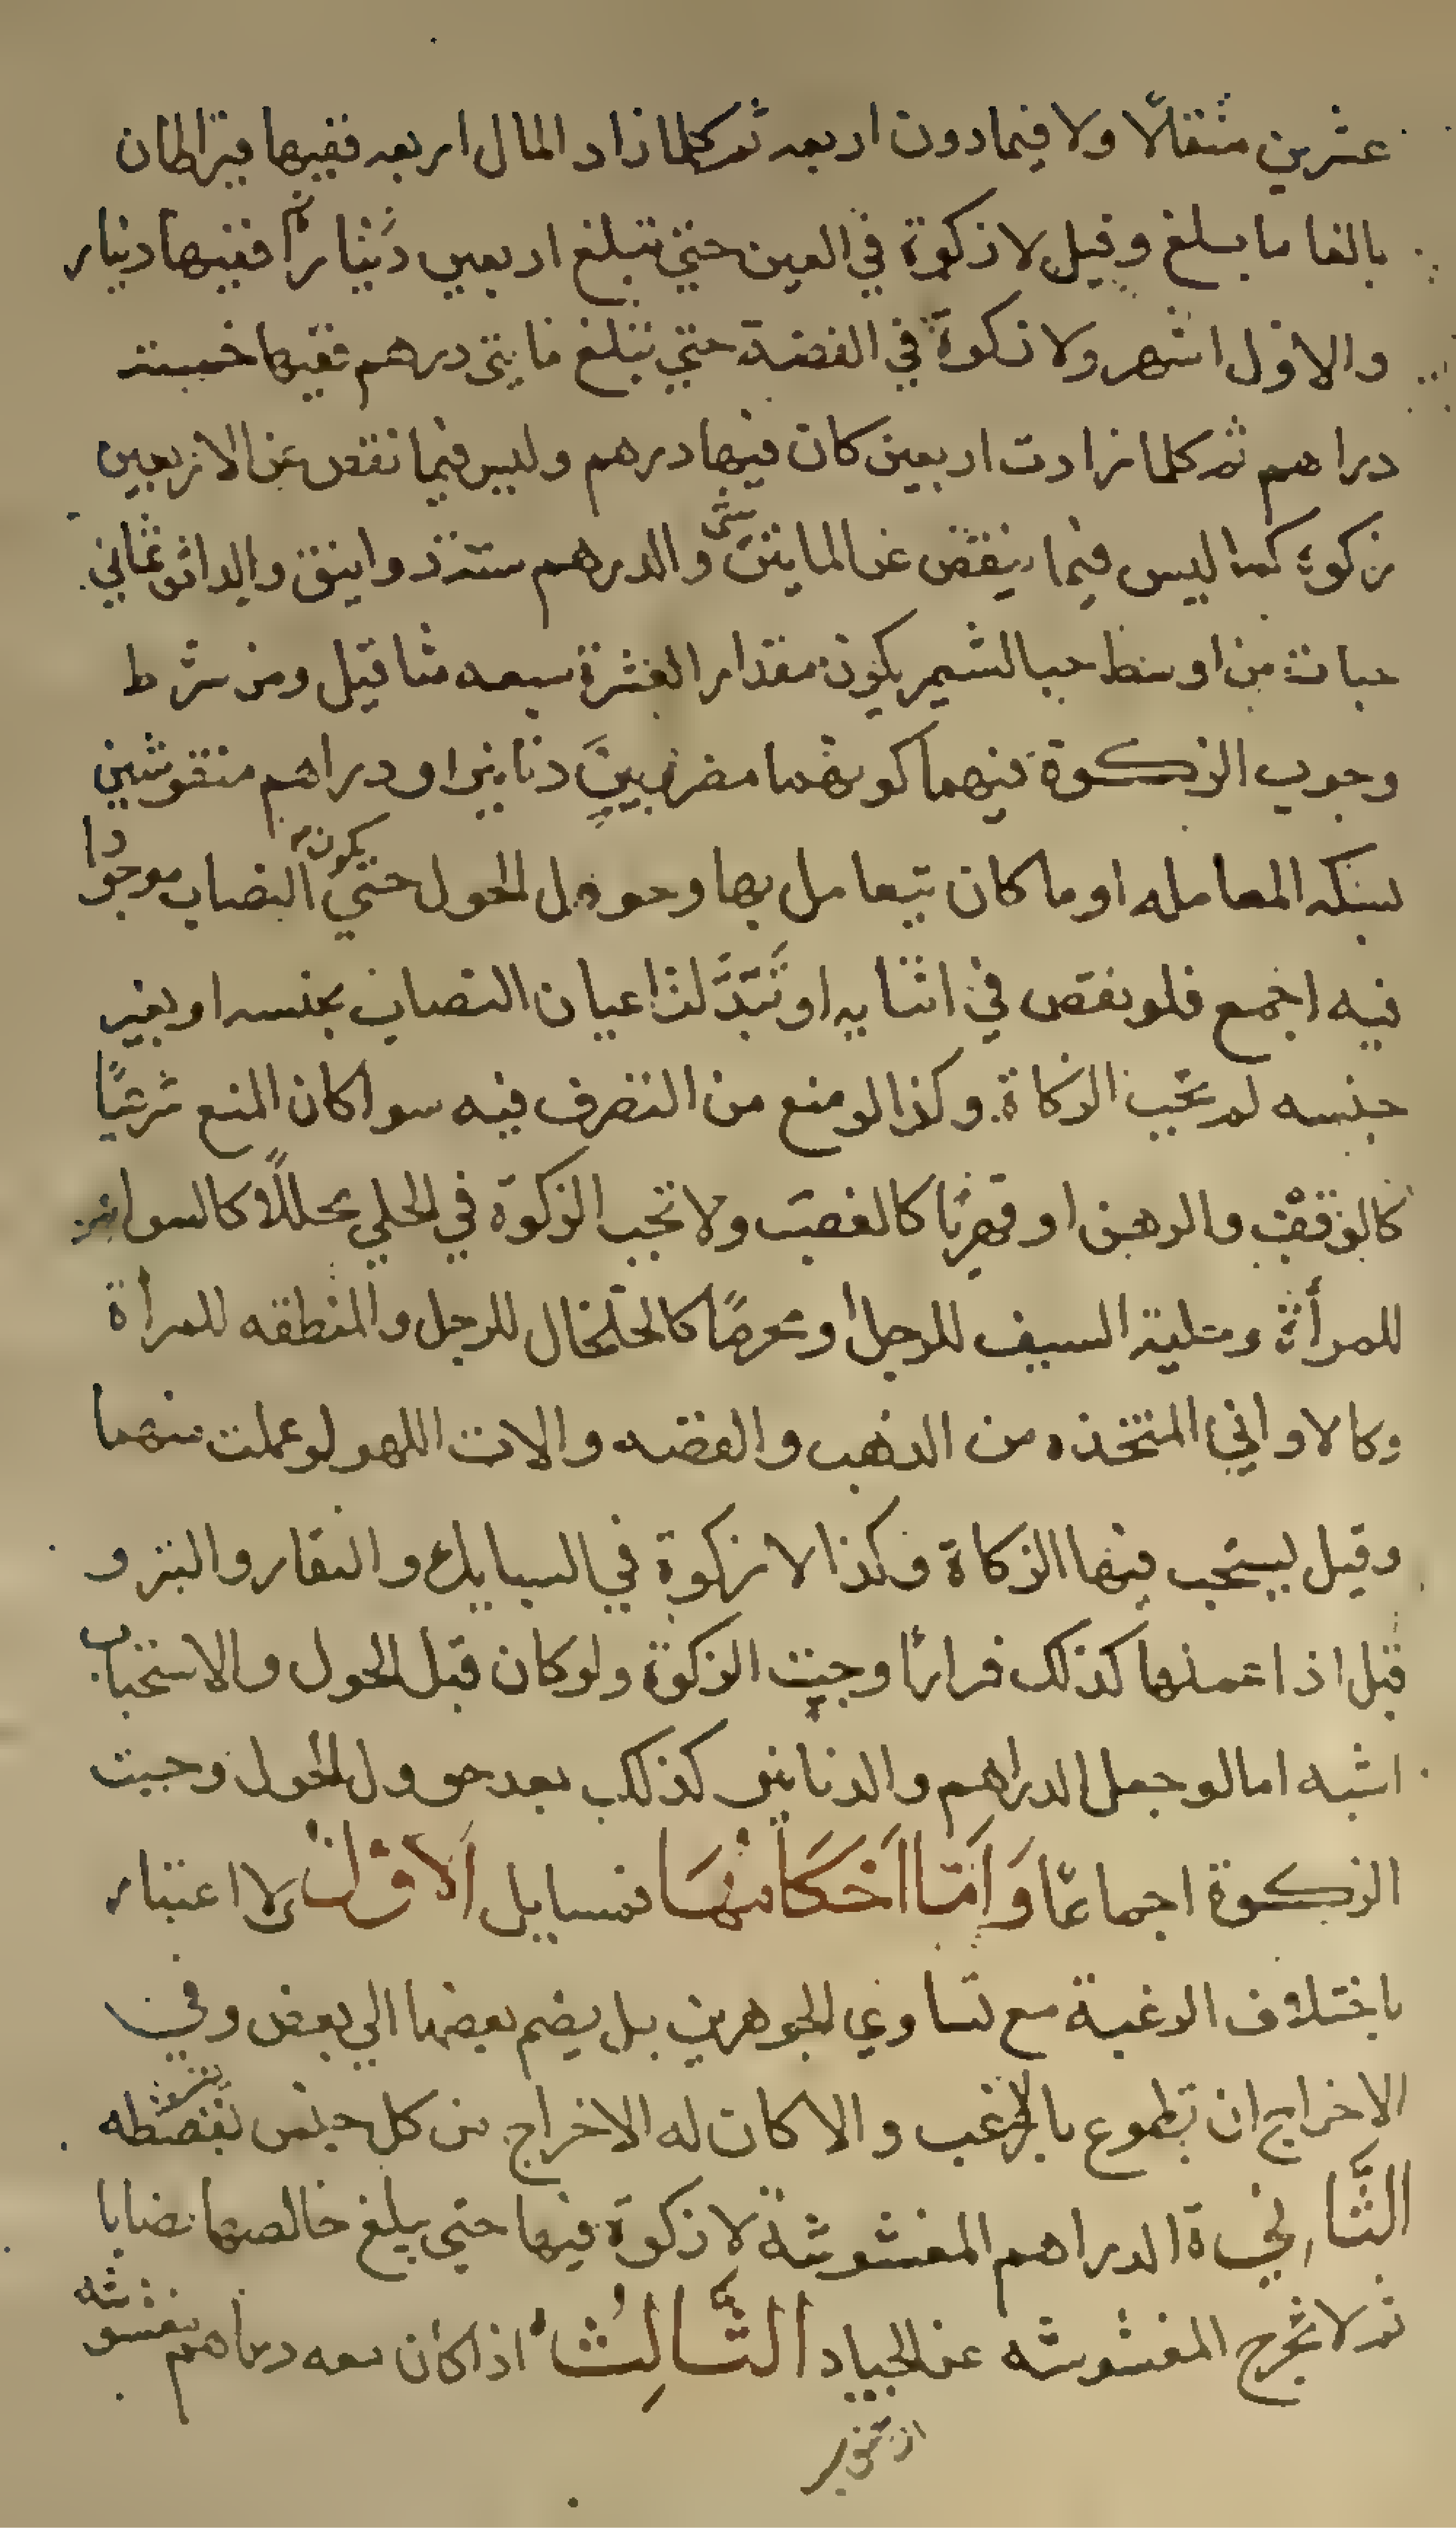 عشرين مثقالًا ولا فيما دون اربعه ثم كلما زاد المال اربعه ففيها قيراطان
بالغا ما بلغ وقيل لا زكوة في العين حتي تبلغ اربعين دينارًا ففيها دينار
والاول اشهر ولا زكوة في الفضة حتي تبلغ مايتي درهم ففيها خمسة
دراهم ثم كلما زادت اربعين كان فيها درهم وليس فيما نقص عن الاربعين
زكوة كما ليس فيما ينقص عن المايتين شي والدرهم ستة دوانيق والدانق ثماني
حبات من اوسط حب الشعير يكون مقدار العشرة سبعه مثاقيل ومن شرط
وجوب الزكوة فيهما كونهما مضروبين دنانير او دراهم منقوشين
بسكه المعامله او ما كان يتعامل بها وحول الحول حتي يكون النصاب موجودا
فيه اجمع فلو نقص في اثنايه او تبدلت اعيان النصاب بجنسه او بغير
جنسه لم تجب الزكاة وكذا لو منع من التصرف فيه سوا كان المنع شرعيًا
كالوقف والرهن او قهريًا كالغصب ولا تجب الزكوة في الحلي محللًا كالسوار
للمرأة وحلية السيف للرجل او محرمًا كالخلخال للرجل والمنطقه للمرأة
وكالاواني المتخذه من الذهب والفضه والات اللهو لو عملت منهما
وقيل يستحب فيها الزكاة وكذا لا زكوة في السبايك والنقار والتبر و
قيل اذا عملها كذلك فرارًا وجبت الزكوة ولو كان قبل الحول والاستحباب
اشبه اما لو جعل الدراهم والدنانير كذلك بعد حوول الحول وجبت
الزكوة اجماعًا وَاَمَّا اَحْكَامُهَا فمسايل اَلاوّلُ لا اعتبار
باختلاف الرغبة مع تساوي الجوهرين بل يضم بعضها الي بعض وفي
الاخراج ان تطوع بالارغب والا كان له الاخراج من كل جنس بقسطه
الثَّانِيةُ الدراهم المغشوشة لا زكوة فيها حتي يبلغ خالصها نصابا
ثم لا تخرج المغشوشه عن الجياد الثَّالِثُ اذا كان معه دراهم مغشوشه